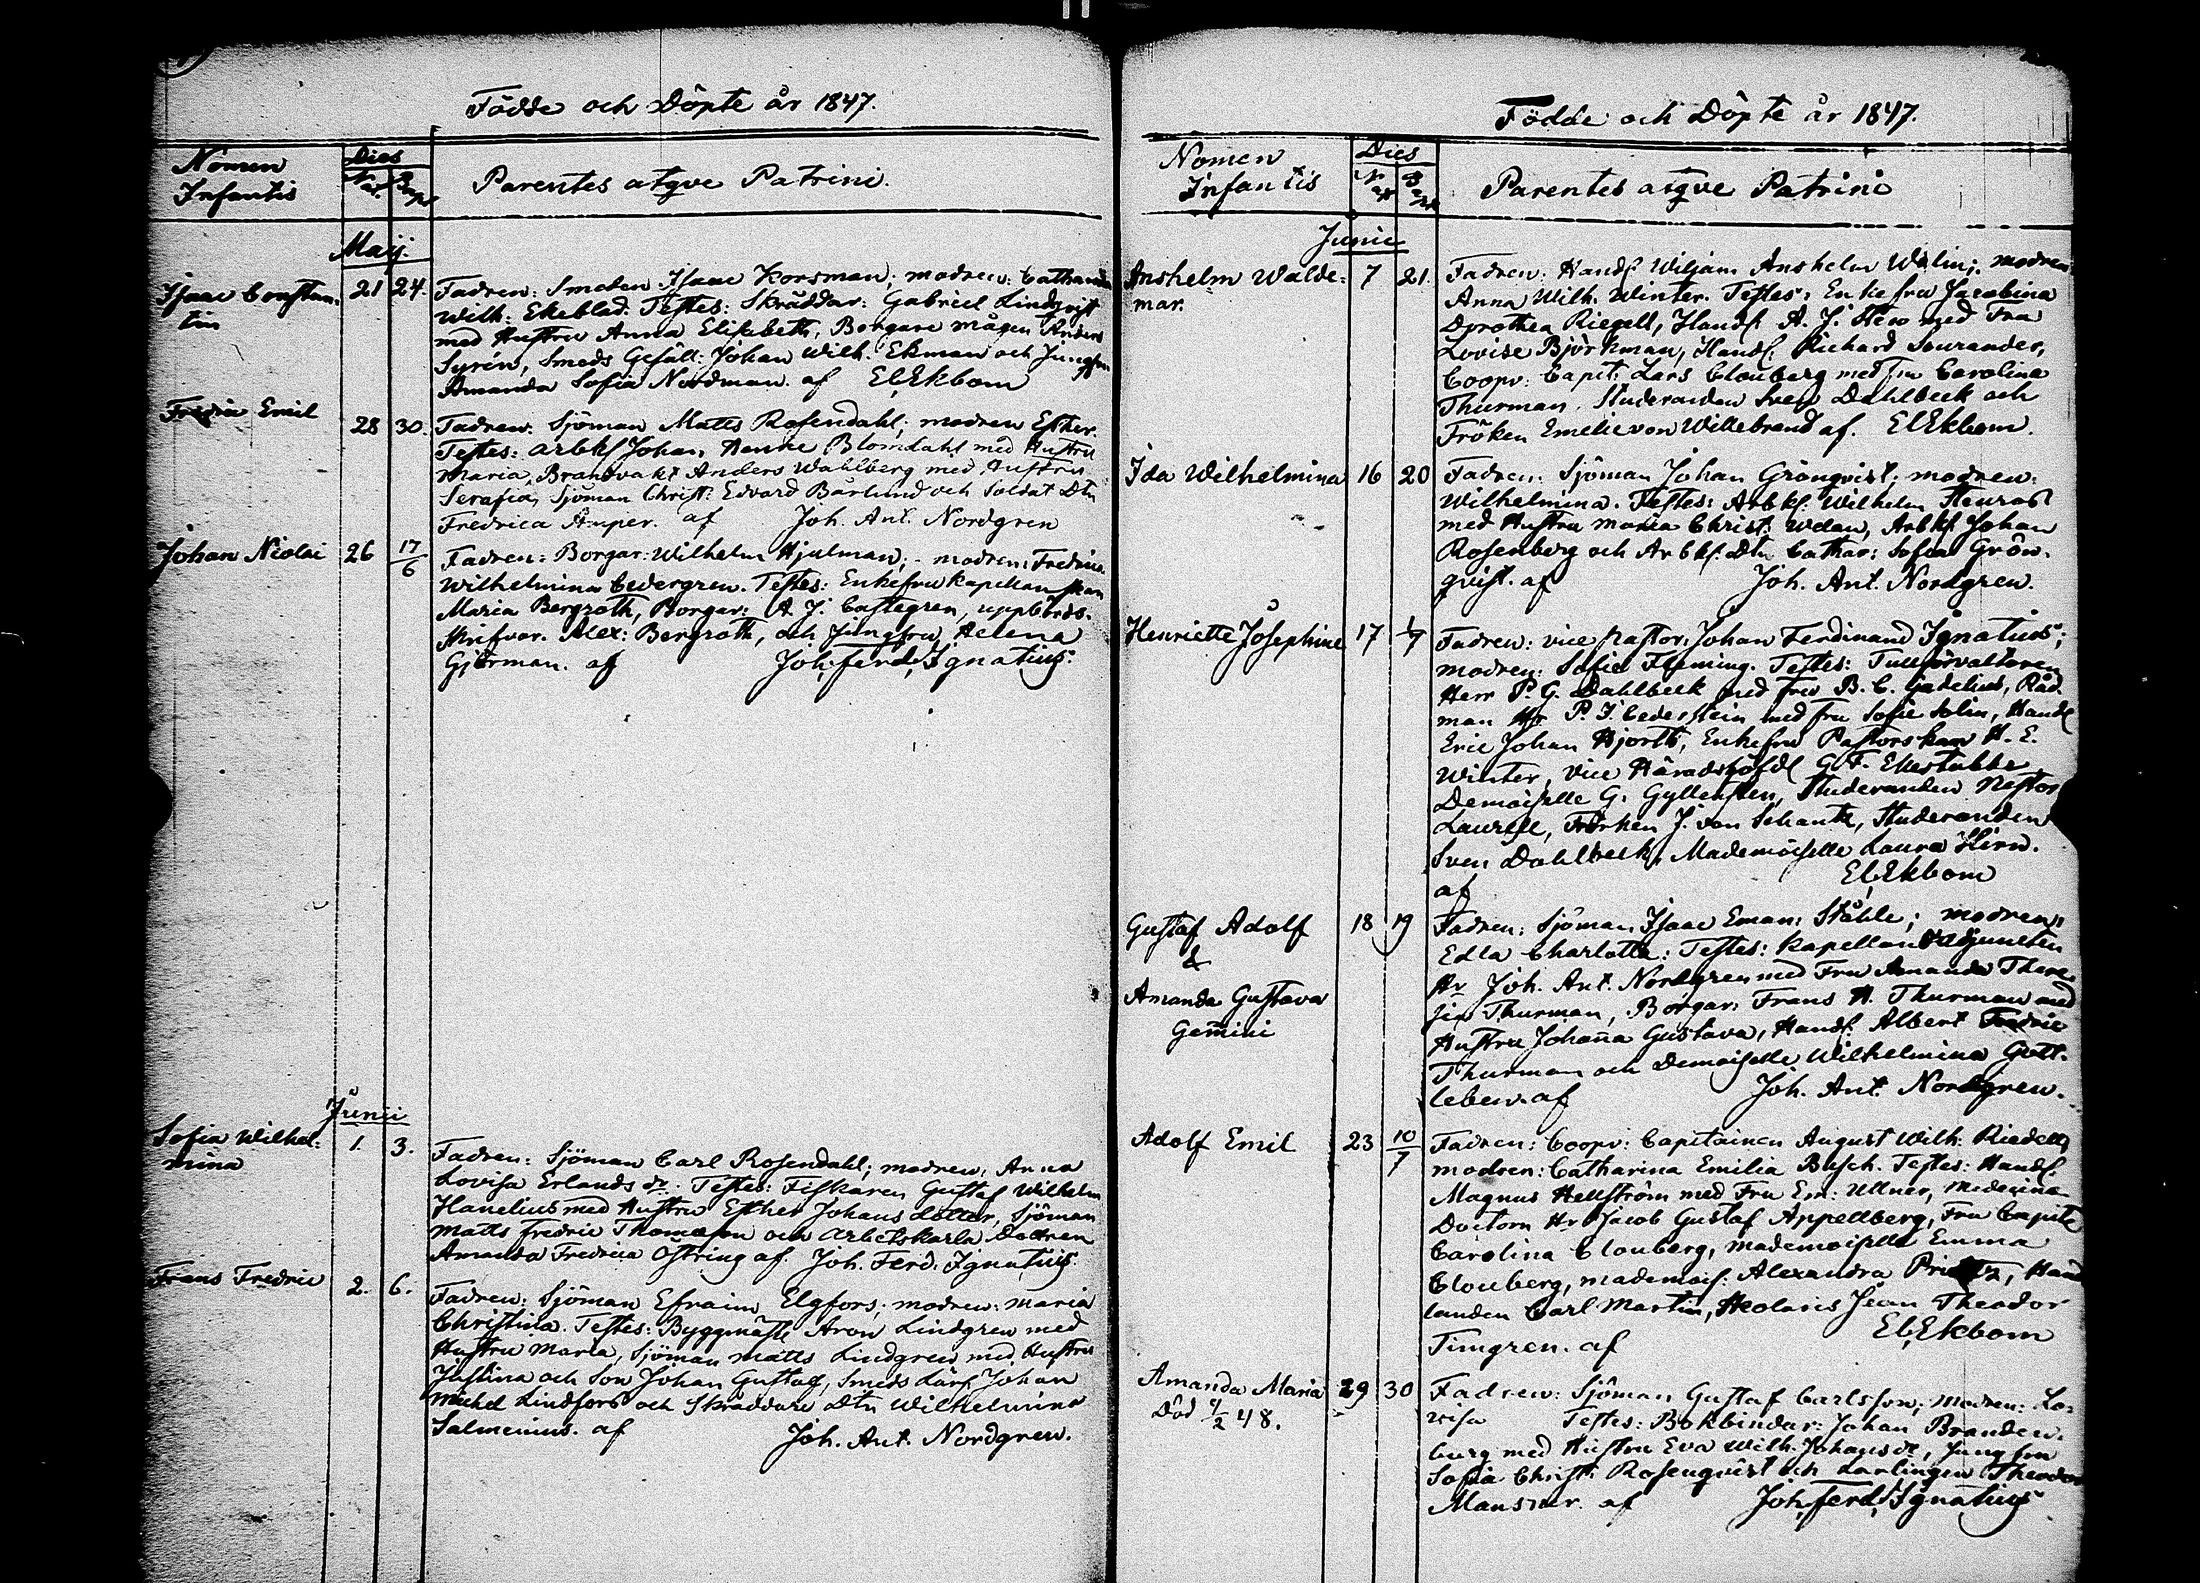 Födde och Döpte år 1847.
Nomen
Infantis
Dies
Nat.
Bap.
Parentes atqve Patrini.
Maij.
Isaac Constan-
tin
21 24.
Fadren: Smeden Isaac Korsman; modren: Catharina
Wilh: Ekeblad. Testes: Skräddar: Gabriel Lindqvist
med Hustru Anna Elisabeth, Borgare mågen Anders
Syrén, Smeds Gesäll: Johan Wilh. Ekman och Jungfru
Amanda Sofia Nordman. af El. Ekbom
Fredric Emil
28 30.
Fadren. Sjöman Matts Rosendahl; modren Esther.
Testes: arbkl Johan Henric Blomdahl med Hustru
Maria, Brandvakt Anders Wahlberg med Hustru
Serafia, Sjöman Christ: Edvard Bärlund och Soldat Dtn
Fredrica Amper. af Joh. Ant. Nordgren
Johan Nicolai
26 17/6
Fadren: Borgar: Wilhelm Hjulman; modren: Fredrica
Wilhelmina Cedergren. Testes: Enkefru Kapellanskan
Maria Bergroth, Borgar: A. J. Castegren, uppbörds-
skrifvar. Alex: Bergroth, och Jungfru Helena
Gjörman. af Joh. Ferd. Ignatius.
Junii
Sofia Wilhel-
mina
1. 3.
Fadren: Sjöman Carl Rosendahl; modren: Anna
Lovisa Erlands dr. Testes: Fiskaren Gustaf Wilhelm
Hanelius med Hustru Esther Johans dotter, Sjöman
Matts Fredric Thomasson och arbetskarls Dottren
Amanda Fredrica Östring af. Joh. Ferd. Ignatius.
Frans Fredric
2. 6.
Fadren: Sjöman Efraim Elgfors; modren: Maria
Christina. Testes: Byggmäst Aron Lindgren med
Hustru Maria, Sjöman Matts Lindgren med Hustru
Justina och Son Johan Gustaf, Smeds Lärl Johan
Michel Lindfors och Skräddare Dtn Wilhelmina
Salmenius. af Joh. Ant. Nordgren.
Födde och Döpte år 1847.
Nomen
Infantis
Dies
Nat
Bap
Parentes atqve Patrini
Junii
Anshelm Walde-
mar.
7 21.
Fadren: Handl Wiljam Anshelm Wilin; modren
Anna Wilh. Winter. Testes: Enkefru Jacobina
Dorothea Riegell, Handl A. J. med Fru
Lovise Björkman, Handl. Richard Sourander,
Coopv: Capit: Lars Clouberg med fru Carolina
Thurman. Studeranden Sven Dahlbeck och
Fröken Emelie von Willebrand af. El. Ekbom.
Ida Wilhelmina
16 20
Fadren: Sjöman Johan Grönqvist; modren:
Wilhelmina. Testes: Arbkl. Wilhelm Stenros
med Hustru Maria Christ: Wdau, Arbkl Johan
Rosenberg och Arbkl. Dtn Cathar: Sofia Grön-
qvist. af Joh. Ant. Nordgren.
Henriette Josephine
17 1/7
Fadren: vice Pastor: Johan Ferdinand Ignatius;
modren: Sofie Fleming. Testes: Tullförvaltaren
Herr P. G. Dahlbeck med fru B. C. Gadelius, Råd-
man Hr P. J. Cederstein med fru Sofie Solin, Handl
Eric Johan Hjorth, Enkefru Pastorskan H. E.
Winter, vice Häradshöfd G. F. Ekestubbe
Demoiselle G. Gyllensten, Studeranden Nestor
Laurell, Fröken J. von Schantz, Studeranden
Sven Dahlbeck, Mademoiselle Laura Hirn.
af El. Ekbom
Gustaf Adolf
&
Amanda Gustava
Gemini
18 19
Fadren: Sjöman Isaac Eman: Ståhle; modren
Edla Charlotta: Testes: Kapellans Adjuncten
Hr Joh. Ant. Nordgren med Fru Amanda There-
sia Thurman, Borgar: Frans H. Thurman med
Hustru Johanna Gustava, Handl. Albert Fredric
Thurman och Demoiselle Wilhelmina Gott-
leben. af Joh. Ant. Nordgren.
Adolf Emil
23 10/7
Fadren: Coopv: Capitainen August Wilh: Riedell,
modren: Catharina Emilia Busch. Testes: Handl.
Magnus Hellström med Fru Em: Ullner, Medecina
Doctorn Hr Jacob Gustaf Appellberg, Fru Capite
Carolina Clouberg, Mademoiselle Emma
Clouberg, mademois: Alexandra Hand
landen Carl Martin, Scolaris Jean Theodor
Timgren. af El. Ekbom
Amanda Maria
Död 4/2 48.
29 30
Fadren: Sjöman Gustaf Carlsson; modren: Lo-
visa Testes: Bokbindar: Johan Branden-
burg med Hustru Eva Wilh. Johansdr, Jungfru
Sofia Christ: Rosenqvist och Lärlingen Theodor
Mansner. af Joh. Ferd. Ignatius